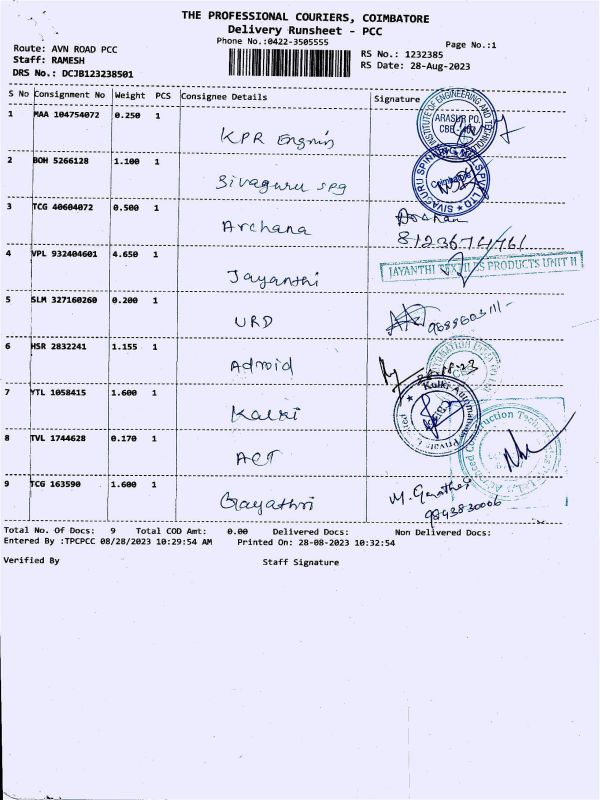 THE PROFESSIONAL COURIERS, COIMBATORE
Delivery Runsheet - PCC
Phone No.:0422-3505555
Page No.:1
Route: AVN ROAD PCC
Staff: RAMESH
DRS No.: DCJB123238501
RS No.: 1232385
RS Date: 28-Aug-2023
S No Consignment No Weight PCS Consignee Details Signature
1 MAA 104754072 0.250 1
KPR Engnin
INSTITUTE OF ENGINEERING AND
ARASUR PO.
2 BOH 5266128 1.100 1
Sivaguru spg
SIVAGURU SPINNING
3 TCG 40604072 0.500 1
Archana
4 VPL 932404601 4.650 1
Jayanthi
JAYANTHI TEXTILES PRODUCTS UNIT II
5 SLM 327160260 0.200 1
URD
6 HSR 2832241 1.155 1
Adroid
28.08.23
7 YTL 1058415 1.600 1
Kalki
Kulki Automation Private
8 TVL 1744628 0.170 1
ACT
Construction
9 TCG 163590 1.600 1
Gayathri
9843830006
Total No. Of Docs: 9 Total COD Amt: 0.00 Delivered Docs: Non Delivered Docs:
Entered By :TPCPCC 08/28/2023 10:29:54 AM Printed On: 28-08-2023 10:32:54
Verified By Staff Signature